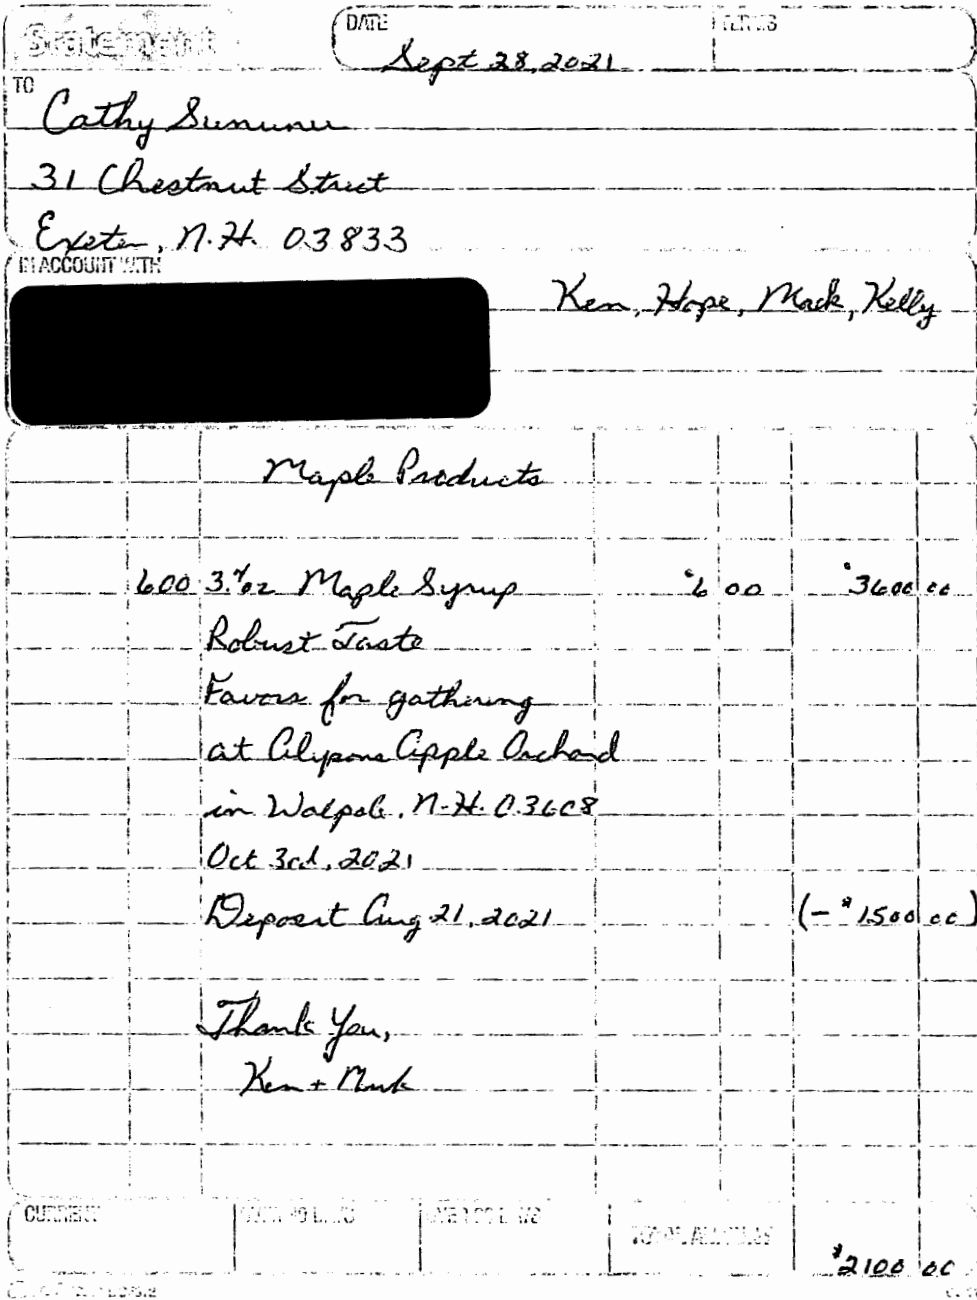 Statement
DATE
Sept 28, 2021
TERMS
TO
Cathy Sununu
31 Chestnut Street
Exeter, N.H. 03833
IN ACCOUNT WITH
Ken, Hope, Mark, Kelly
Maple Products
600 3.4oz Maple Syrup $6 00 $3600 00
Robust Taste
Favors for gathering
at Alysons Apple Orchard
in Walpole, N.H. 03608
Oct 3rd, 2021
Deposit Aug 21, 2021 (-$1500 00)
Thank You,
Ken + Mark
CURRENT
TOTAL AMOUNT
$2100 00